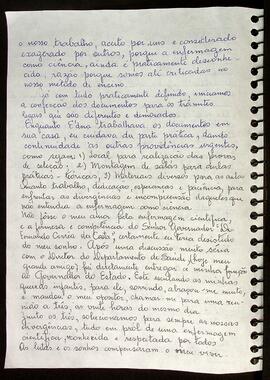 o nosso trabalho, aceito por uns e considerado
exagerado por outros, porque a enfermagem
como ciência, ainda é praticamente desconhe-
cida, razão porque somos até criticadas no
nosso método de ensino.
Já com tudo praticamente definido, iniciamos
a confecção dos documentos para os trâmites
legais que são diferentes e demorados.
Enquanto Edna trabalhava os documentos em
sua casa, eu cuidava da parte prática, dando
continuidade às outras providências urgentes,
como sejam; 1) local para realização das provas
de seleção; 2) Montagem de salas para aulas
práticas e teóricas; 3) Materiais diversos para as aulas
Quanto trabalho, dedicação, esperanças e paciência, para
enfrentar as divergências e incompreensão daqueles que
não entendia a enfermagem como ciência.
Não fôsse o meu amor pela enfermagem científica,
e a firmeza e competência do Senhor Governador:
Fernando Corrêa da Costa, certamente eu teria desistido
do meu sonho. Após uma discussão muito séria
com o Diretor do Departamento de Saúde (hoje meu
grande amigo) fui diretamente entregar a minha função
ao Governador do Estado. Este ouvindo as minhas
queixas infantis, para ele, sorrindo, abraçou-me muito,
e mandou o meu opositor, chamar-nos para uma reu-
nião a três, as vinte horas do mesmo dia.
Juntos os três, solucionamos para sempre as nossas
divergências, tudo em pról de uma enfermagem
científica, conhecida e respeitada por todos
As lutas e os sonhos compuseram o meu viver